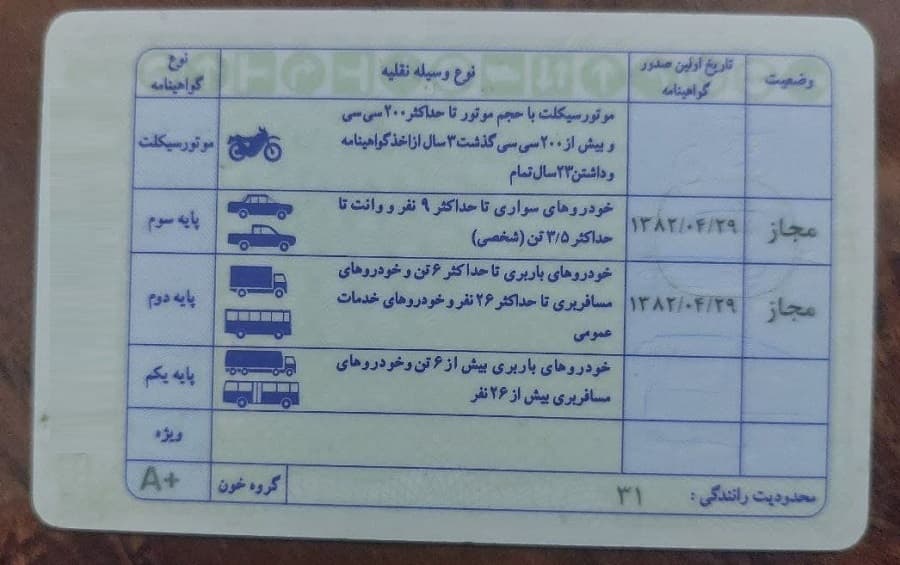 وضعیت
تاریخ اولین صدور
گواهینامه
نوع وسیله نقلیه
نوع
گواهینامه
موتورسیکلت با حجم موتور تا حداکثر ۲۰۰ سی سی
و بیش از ۲۰۰ سی سی گذشت ۳ سال از اخذ گواهینامه
و داشتن ۲۳ سال تمام
موتورسیکلت
مجاز
۱۳۸۲/۰۴/۲۹
خودروهای سواری تا حداکثر ۹ نفر و وانت تا
حداکثر ۳/۵ تن (شخصی)
پایه سوم
مجاز
۱۳۸۲/۰۴/۲۹
خودروهای باربری تا حداکثر ۶ تن و خودروهای
مسافربری تا حداکثر ۲۶ نفر و خودروهای خدمات
عمومی
پایه دوم
خودروهای باربری بیش از ۶ تن وخودروهای
مسافربری بیش از ۲۶ نفر
پایه یکم
ویژه
محدودیت رانندگی : ۳۱
گروه خون
A+